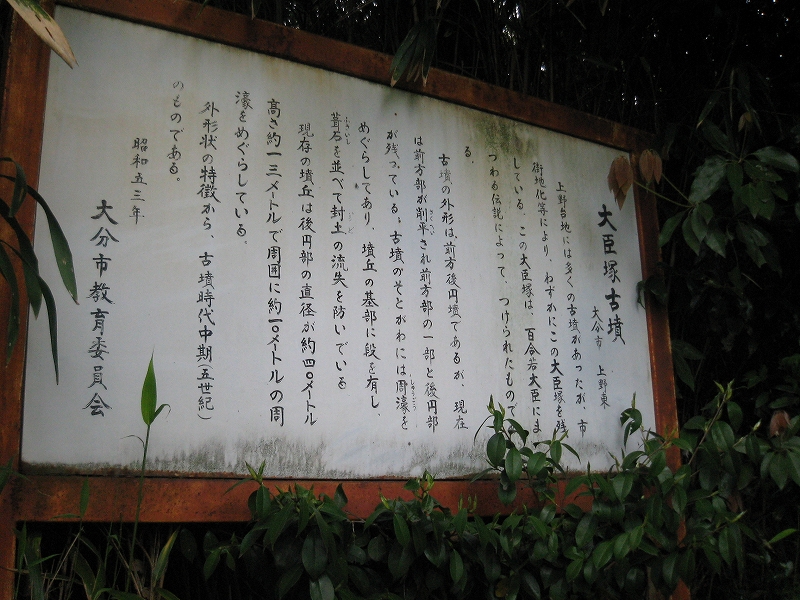 大臣塚古墳
大分市 上野東
上野台地には多くの古墳があったが、市
街地化等により、わずかにこの大臣塚を残
している。この大臣塚は、百合若大臣にま
つわる伝説によって、つけられたもので
る。
古墳の外形は、前方後円墳であるが、現在
は前方部が削平され前方部の一部と後円部
が残っている。古墳のそとがわには周濠を
めぐらしてあり、墳丘の基部に段を有し、
葺石を並べて封土の流失を防いでいる
現存の墳丘は後円部の直径が約四〇メートル
高さ約一三メートルで周囲に約一〇メートルの周
濠をめぐらしている。
外形状の特徴から、古墳時代中期(五世紀)
のものである。
昭和五三年
大分市教育委員会